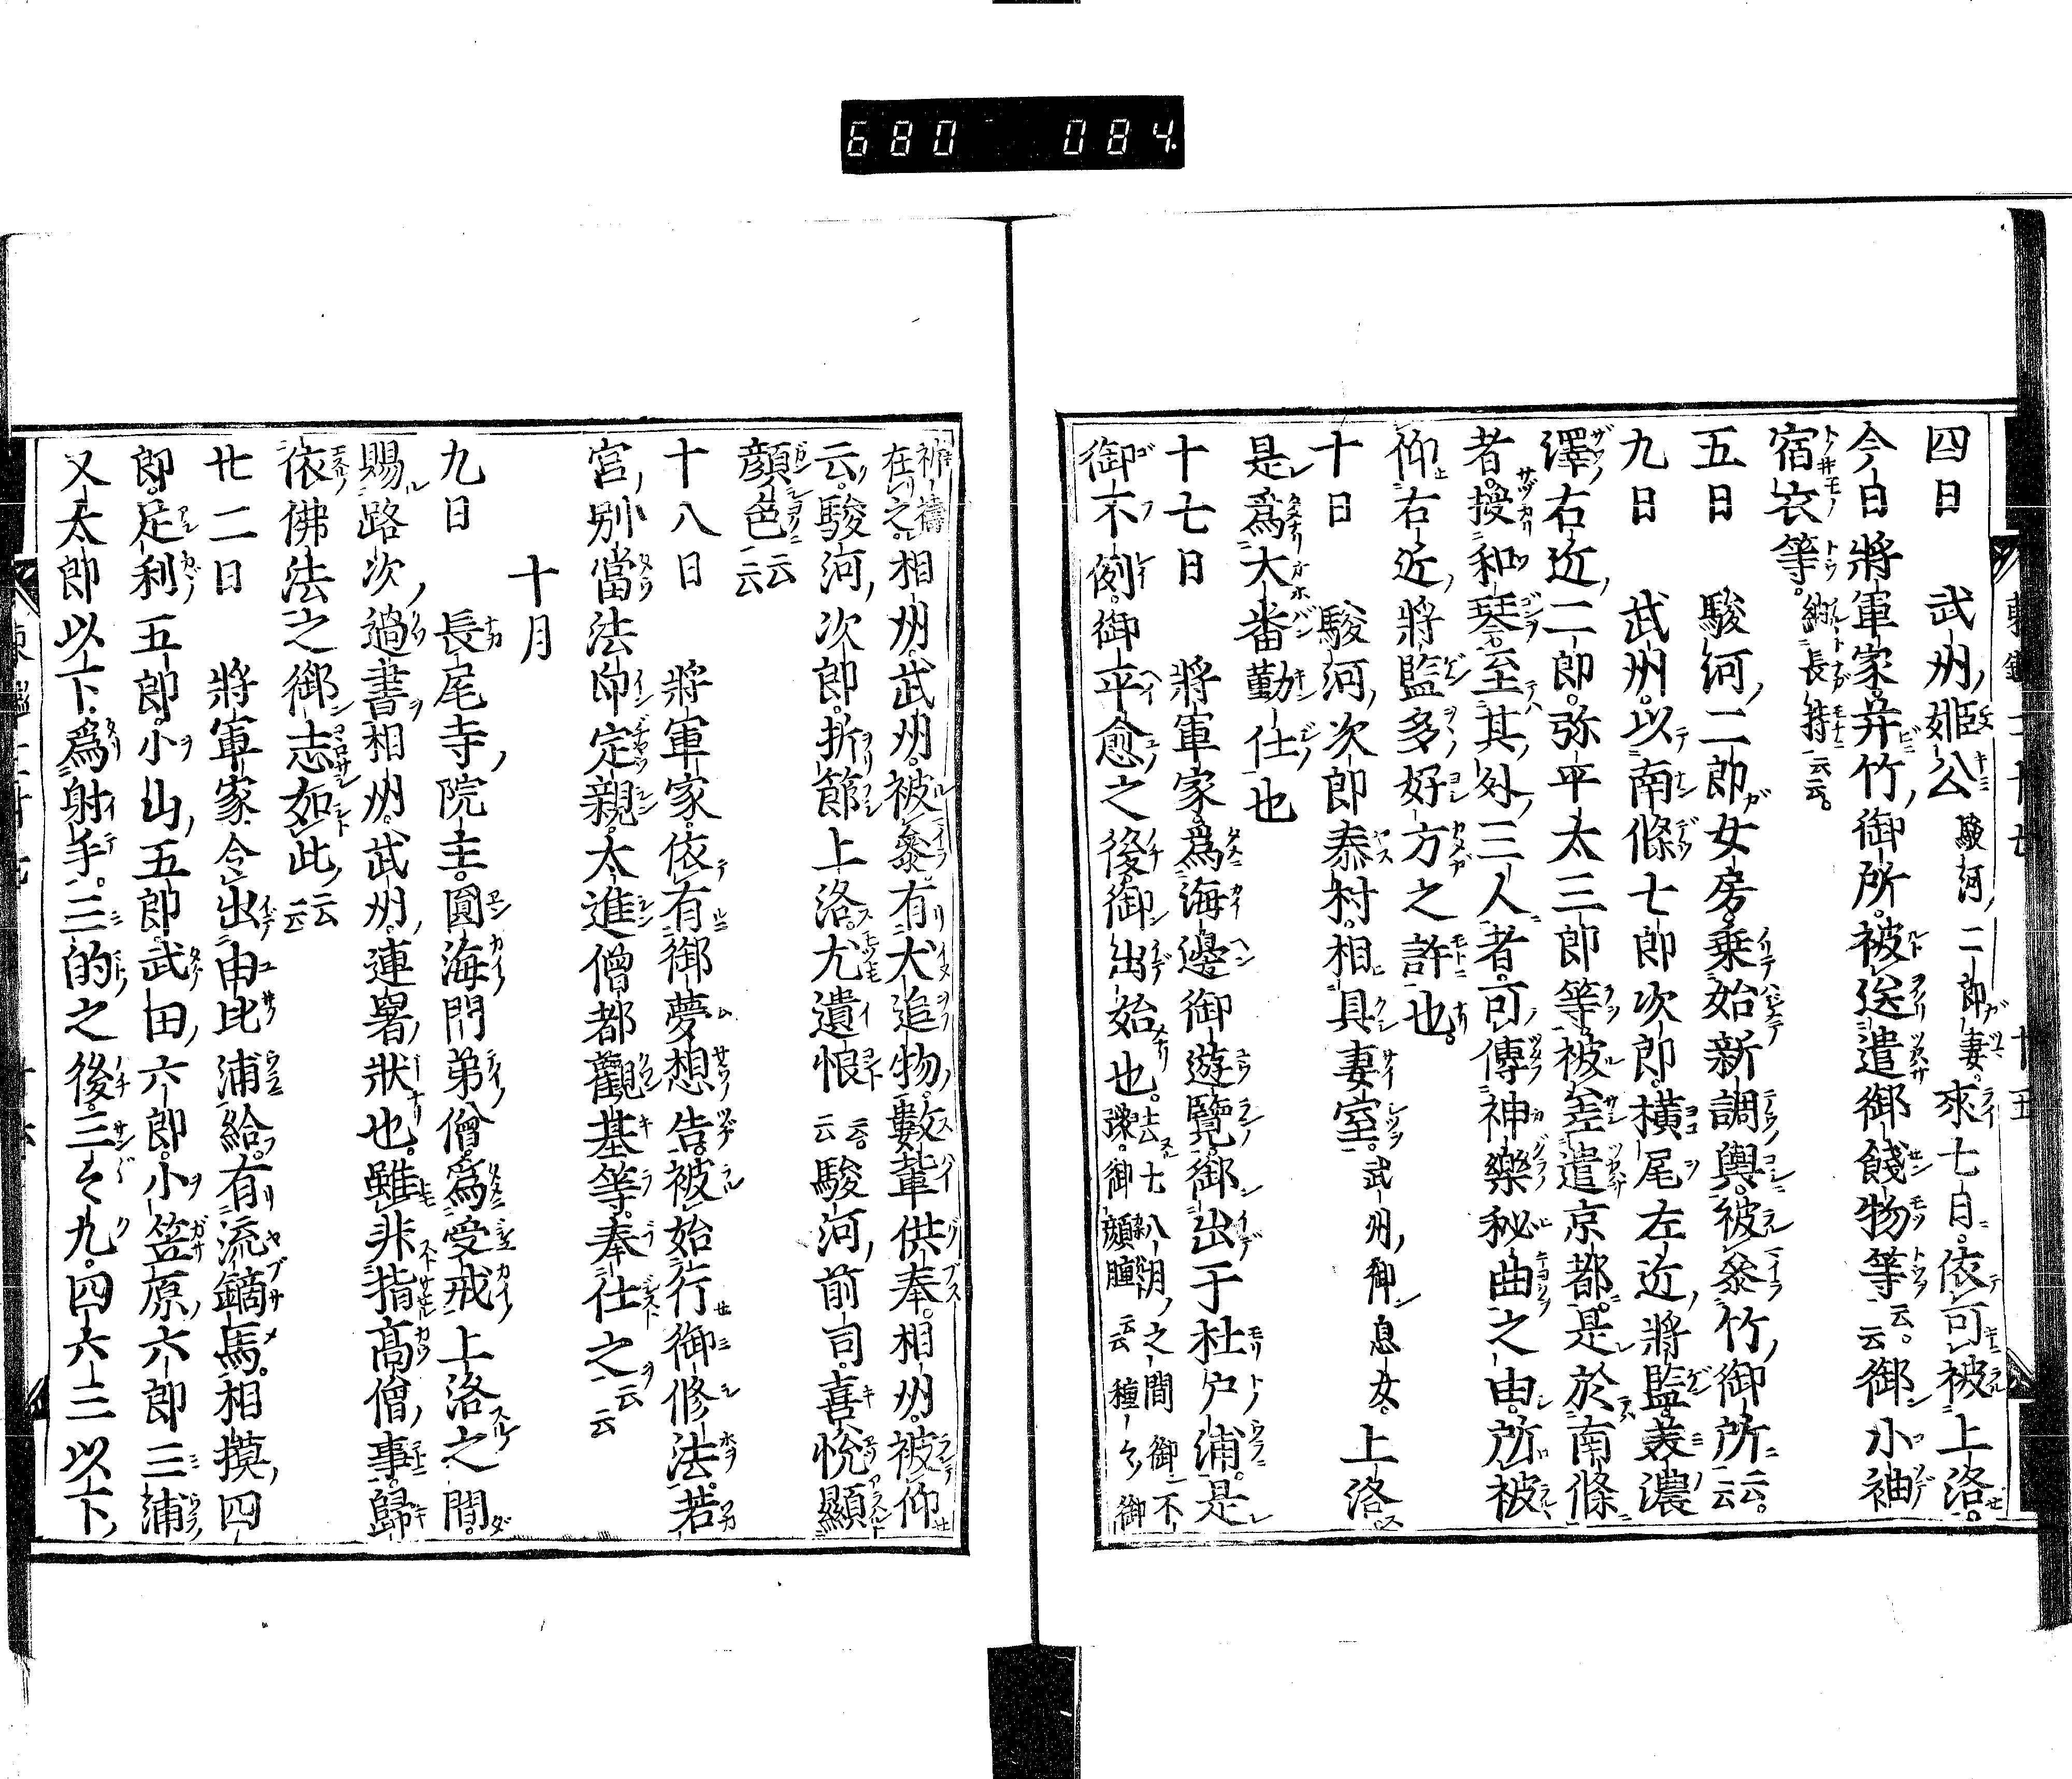 680 084.
四日 武州姫公駿河二郎妻来七日依可被上洛
今日將軍家并竹御所被送遣御餞物等云云御小袖
宿衣等納長持云云
五日 駿河二郎女房乗始新調輿被參竹御所云云
九日 武州以南條七郎次郎横尾左近將監美濃
澤右近二郎弥平太三郎等被差遣京都是於南條
者授和琴至其外三人者可傳神樂秘曲之由所被
仰右近將監多好方之許也
十日 駿河次郎泰村相具妻室武州御息女上洛
是爲大番勤仕也
十七日 將軍家爲海邊御遊覽御出于杜戸浦是
御不例御平愈之後御出始也去七八月之間御不豫御顔腫云云種々御
祈禱在之相州武州被參有犬追物數輩供奉相州被仰
云駿河次郎折節上洛尤遺恨云云駿河前司喜悅顯
顔色云云
十八日 將軍家依有御夢想告被始行御修法若
宮別當法印定親大進僧都觀基等奉仕之云云
十月
九日 長尾寺院主圓海門弟僧爲受戒上洛之間
賜路次過書相州武州連署狀也雖非指高僧事歸
依佛法之御志如此云云
廿二日 將軍家令出由比浦給有流鏑馬相摸四
郎足利五郎小山五郎武田六郎小笠原六郎三浦
又太郎以上爲射手三的之後三々九四六三以上